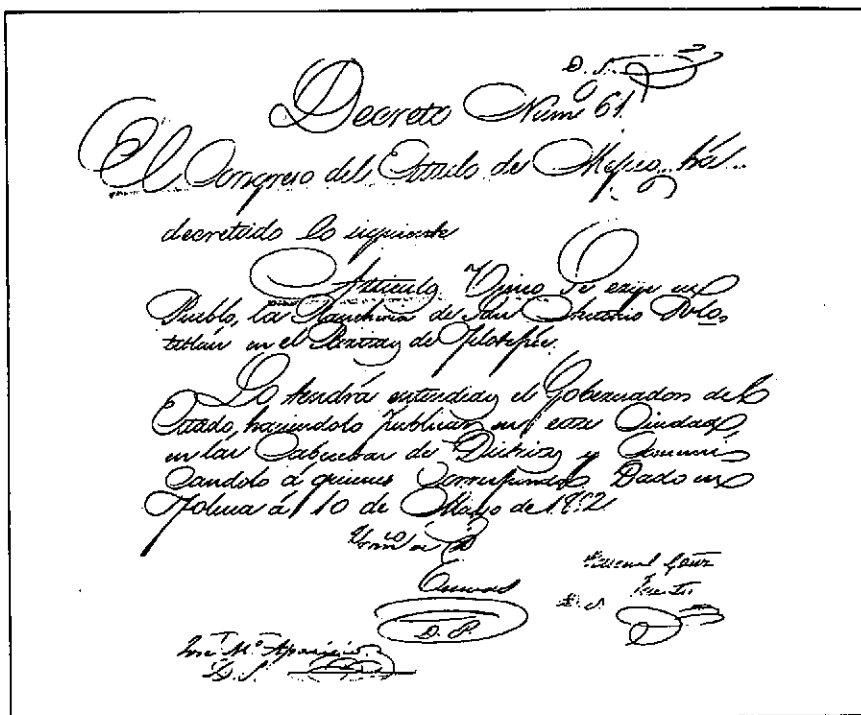 D. S.
Decreto Núm 61.
El Congreso del Estado de Mejico, há
decretado lo siguiente
Articulo Unico Se erige en
Pueblo, la Rancheria de San Antonio Polo,
titlán en el Partido de Jilotepec.
Lo tendrá entendido el Gobernador del
Estado, haciendolo publicar en esta Ciudad
en las Cabeceras de Distrito y Comuni
candolo á quienes corresponda. Dado en
Toluca á 10 de Mayo de
D. P.
Manuel
D. S.
José Mª Aparicio
D. S.